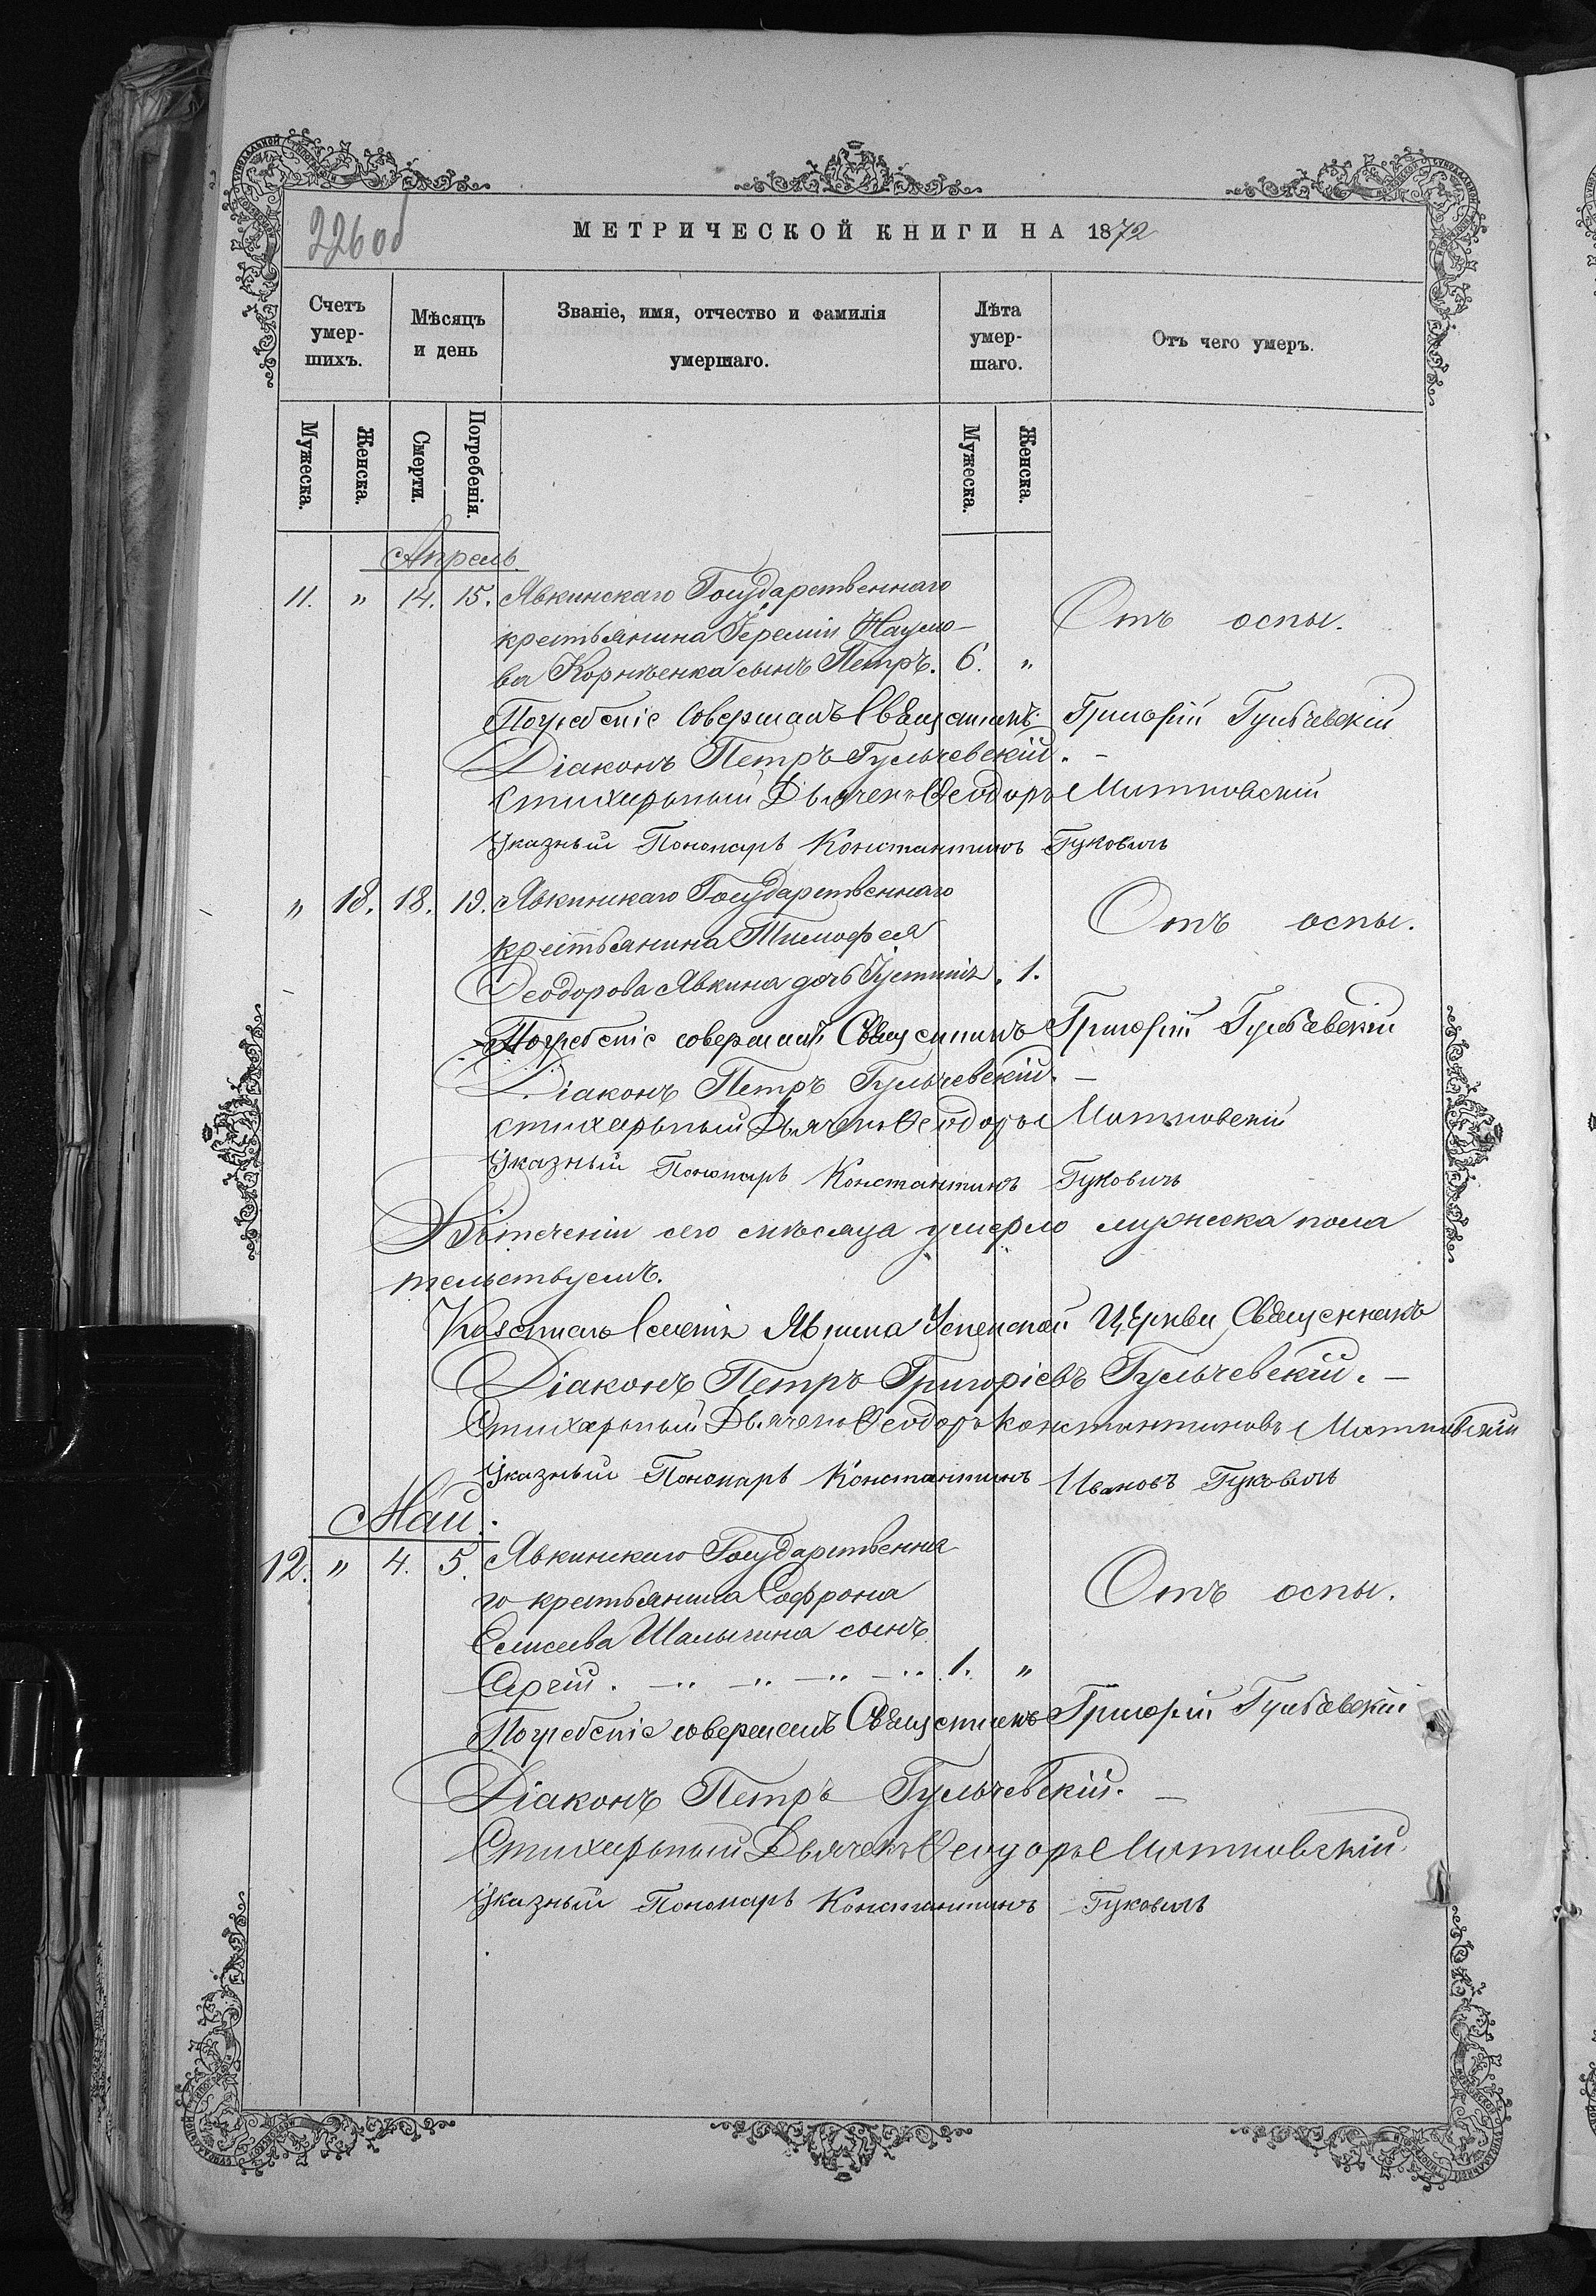 226 об
МЕТРИЧЕСКОЙ КНИГИ НА 1872
Счетъ умер-шихъ.
Мѣсяцъ и день
Званіе, имя, отчество и фамилія умершаго.
Лѣта умер-шаго.
Отъ чего умеръ.
Мужеска.
Женска.
Смерти.
Погребенія.
Мужеска.
Женска.
Апрель.
11. " 14. 15. Явкинскаго Государственнаго
крестьянина Іереміи Наумо-
Отъ оспы.
ва Корнѣенка сынъ Петръ. 6. "
Погребеніе совершалъ Священникъ Григорій Гульчевскій
Діаконъ Петръ Гульчевскій. -
Стихарный Дьячекъ Ѳеодоръ Митковскій
Указный Пономарь Константинъ Гуковичъ
" 18. 18. 19. Явкинскаго Государственнаго
Отъ оспы.
крестьянина Тимофея
Ѳеодорова Явкина дочь Іустинія. 1.
Погребеніе совершалъ Священникъ Григорій Гульчевскій
Діаконъ Петръ Гульчевскій. -
Стихарный Дьячекъ Ѳеодоръ Митковскій
Указный Пономарь Константинъ Гуковичъ
Въ теченіи сего мѣсяца умерло мужеска пола
тельствуемъ.
Явкина Успенской Церкви Священникъ
Діаконъ Петръ Григоріевъ Гульчевскій. -
Стихарный Дьячекъ Ѳеодоръ Константиновъ Митковскій
Указный Пономарь Константинъ Ивановъ Гуковичъ
Май.
12. " 4. 5. Явкинскаго Государственна
го крестьянина Софрона
Отъ оспы.
Елисеева Шалыгина сынъ
Сергій. 1. "
Погребеніе совершалъ Священникъ Григорій Гульчевскій
Діаконъ Петръ Гульчевскій. -
Стихарный Дьячекъ Ѳеодоръ Митковскій
Указный Пономарь Константинъ Гуковичъ